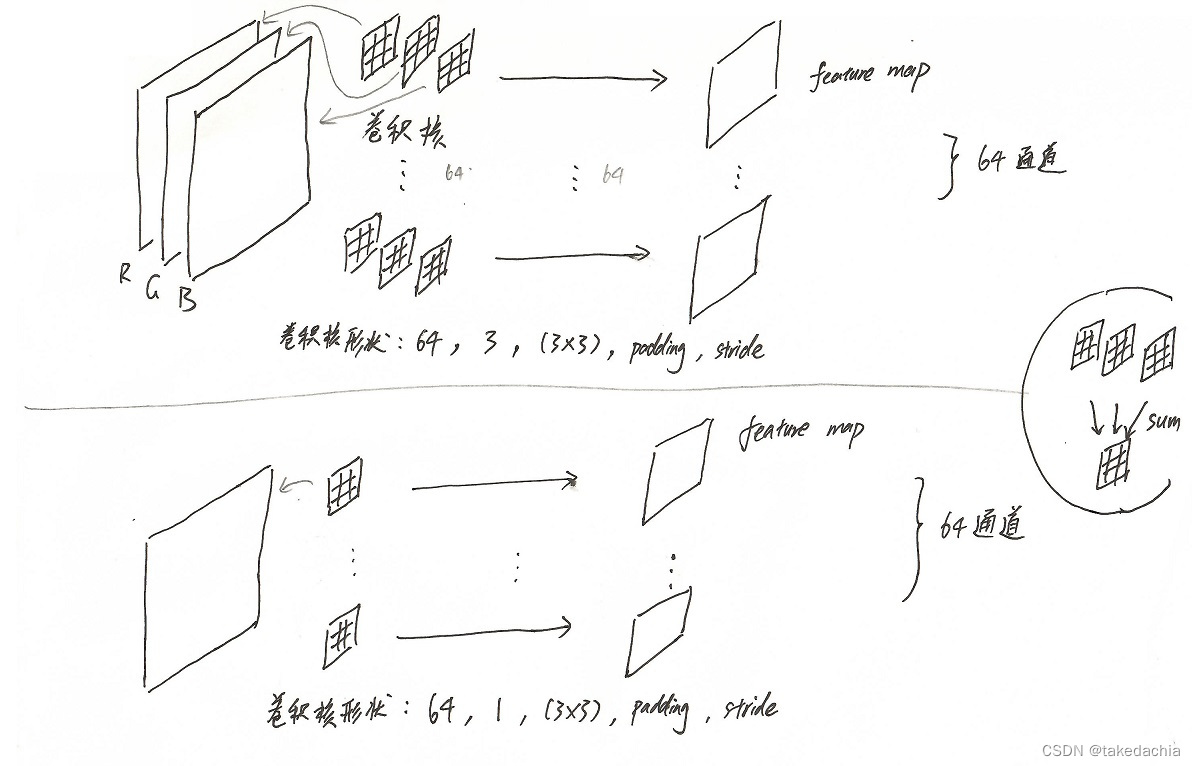 feature map
卷积核
64
64
64通道
R G B
卷积核形状：64，3，(3×3)，padding，stride
sum
feature map
64通道
卷积核形状：64，1，(3×3)，padding，stride
CSDN @takedachia